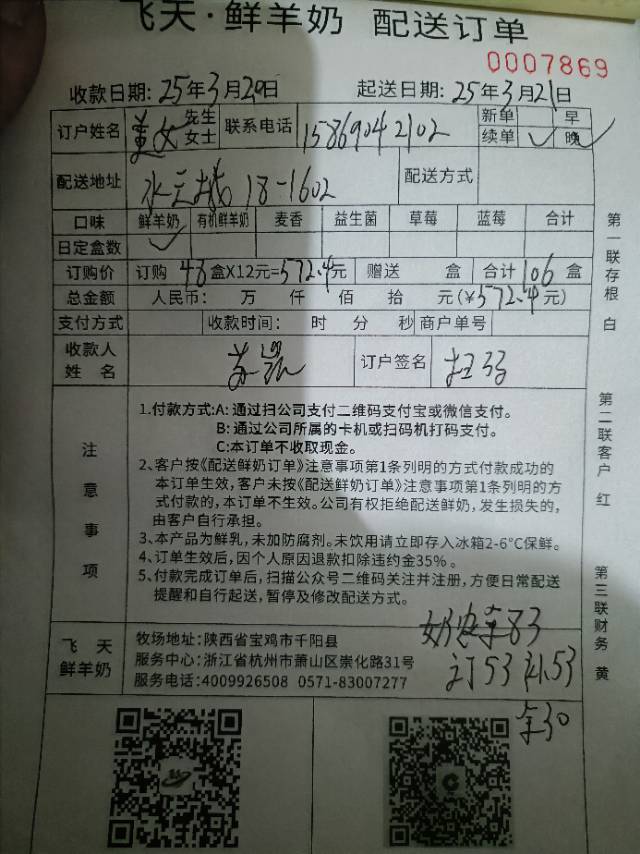 飞天·鲜羊奶 配送订单
0007869
收款日期: 25年3月20日 起送日期: 25年3月21日
订户姓名 美女 先生 女士 联系电话 15869042102 新单 早 续单 ✓ 晚 ✓
配送地址 水云 18-1602 配送方式
口味 鲜羊奶 有机鲜羊奶 麦香 益生菌 草莓 蓝莓 合计
日定盒数 ✓
订购价 订购 48 盒X12元=572.4元 赠送 盒 合计 106 盒
总金额 人民币: 万 仟 佰 拾 元(¥572.4元)
支付方式 收款时间: 时 分 秒 商户单号
收款人姓名 订户签名
注意事项
1.付款方式:A: 通过扫公司支付二维码支付宝或微信支付。
B: 通过公司所属的卡机或扫码机打码支付。
C:本订单不收取现金。
2、客户按《配送鲜奶订单》注意事项第1条列明的方式付款成功的
本订单生效,客户未按《配送鲜奶订单》注意事项第1条列明的方
式付款的,本订单不生效。公司有权拒绝配送鲜奶,发生损失的,
由客户自行承担。
3、本产品为鲜乳,未加防腐剂。未饮用请立即存入冰箱2-6°C保鲜。
4、订单生效后,因个人原因退款扣除违约金35%。
5、付款完成订单后,扫描公众号二维码关注并注册,方便日常配送
提醒和自行起送,暂停及修改配送方式。
飞天鲜羊奶
牧场地址:陕西省宝鸡市千阳县
服务中心:浙江省杭州市萧山区崇化路31号
服务电话:4009926508 0571-83007277
83
订53 补53
余30
第一联存根 白
第二联客户 红
第三联财务 黄